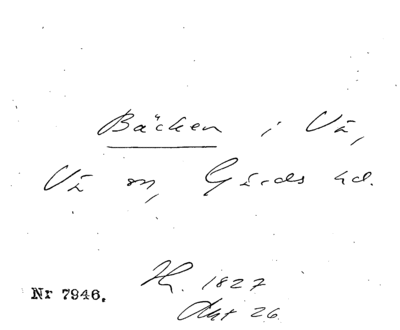 Bäcken i Vä,
Vä sn, Gärds hd.
Hf. 1827
Okt 26
Nr 7946.